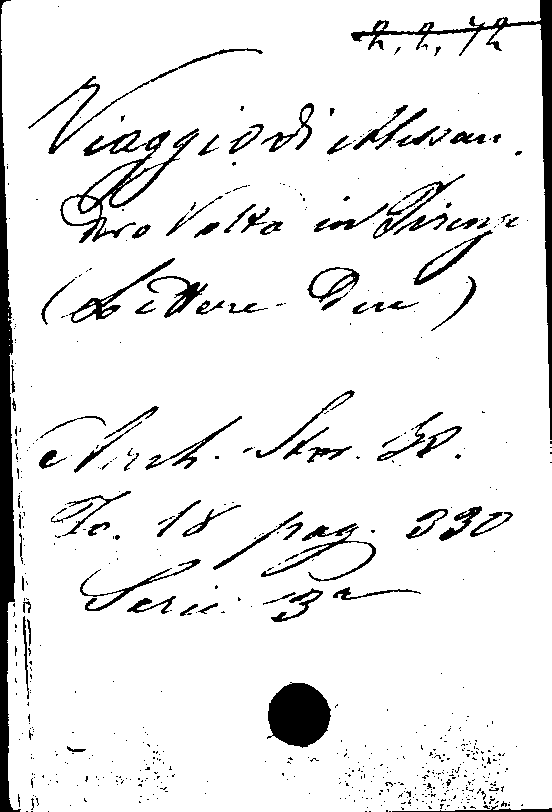 2. 2. 72
Viaggio di Alessan.
dro Volta in Firenze
(Lettere Due)
Arch. Stor. It.
To. 18 pag. 330
Serie 3a